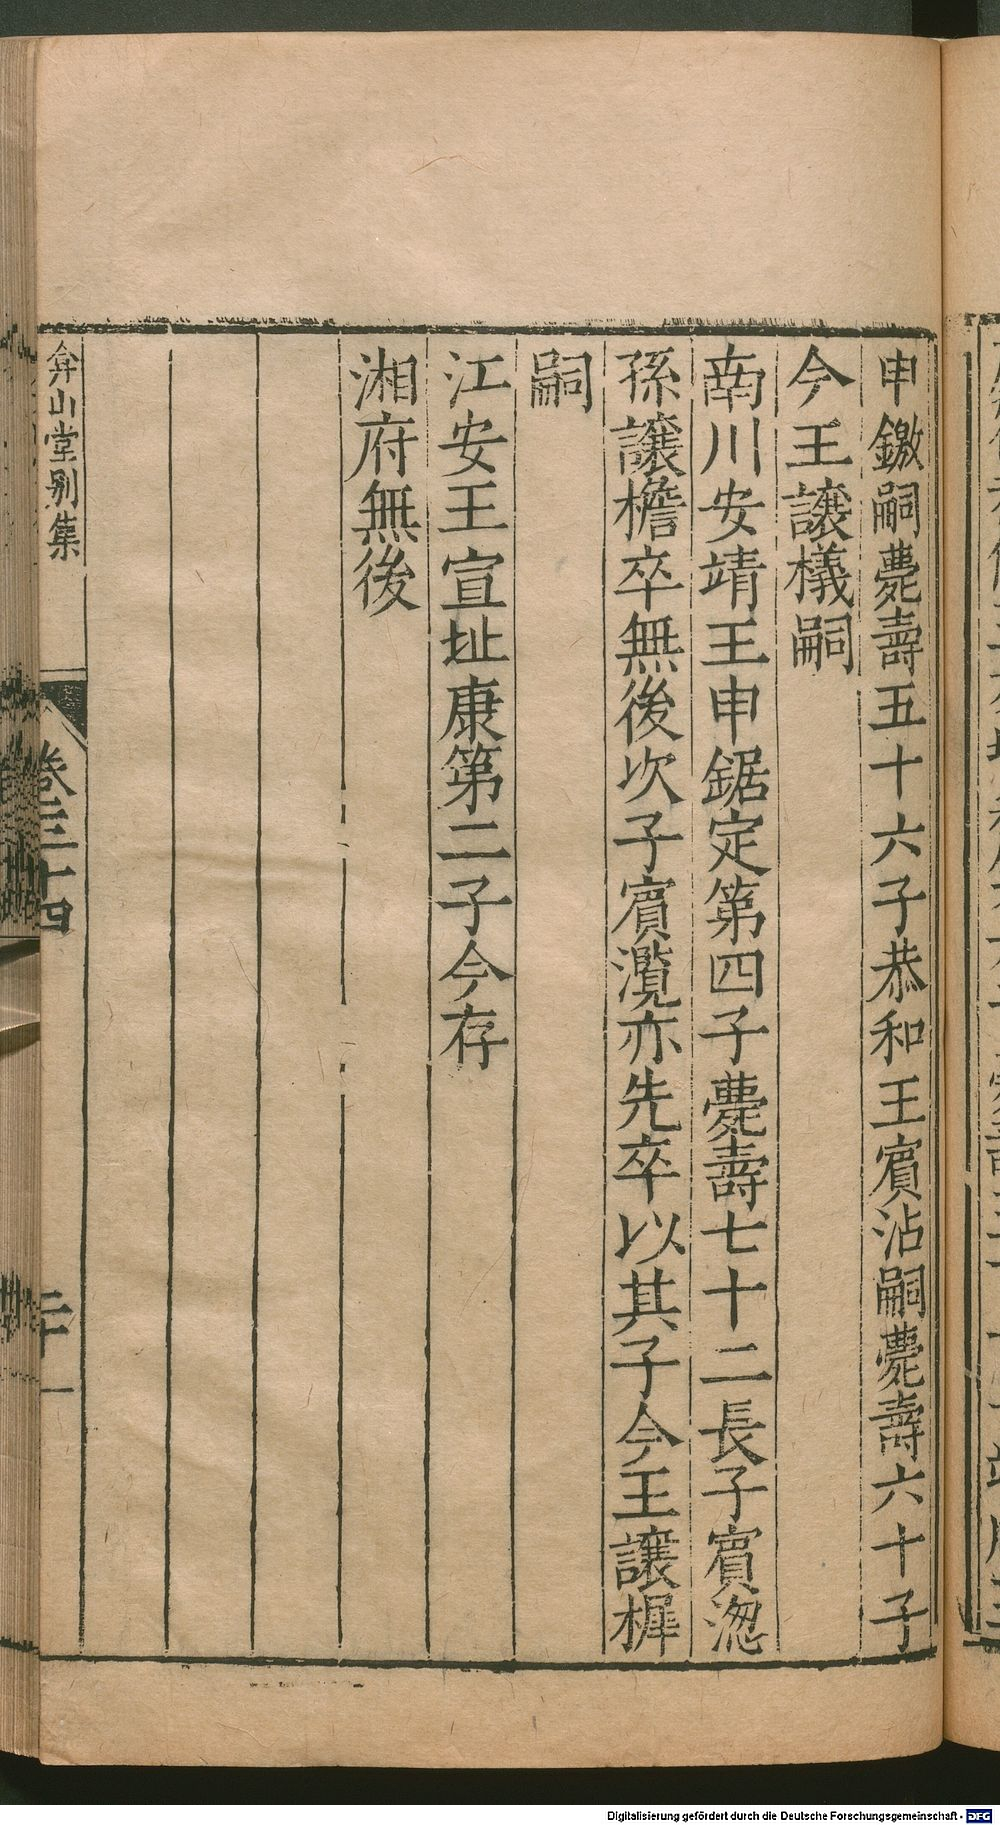 申鏾嗣薨壽五十六子恭和王賔沾嗣薨壽六十子
今王譲檥嗣
南川安靖王申鋸定第四子薨壽七十二長子賔淴
孫譲檐卒無後次子賔灠亦先卒以其子今王譲樨
嗣
江安王宣𡉏康第二子今存
湘府無後
弇山堂别集
卷三十四
二十一
Digitalisierung gefördert durch die Deutsche Forschungsgemeinschaft - DFG